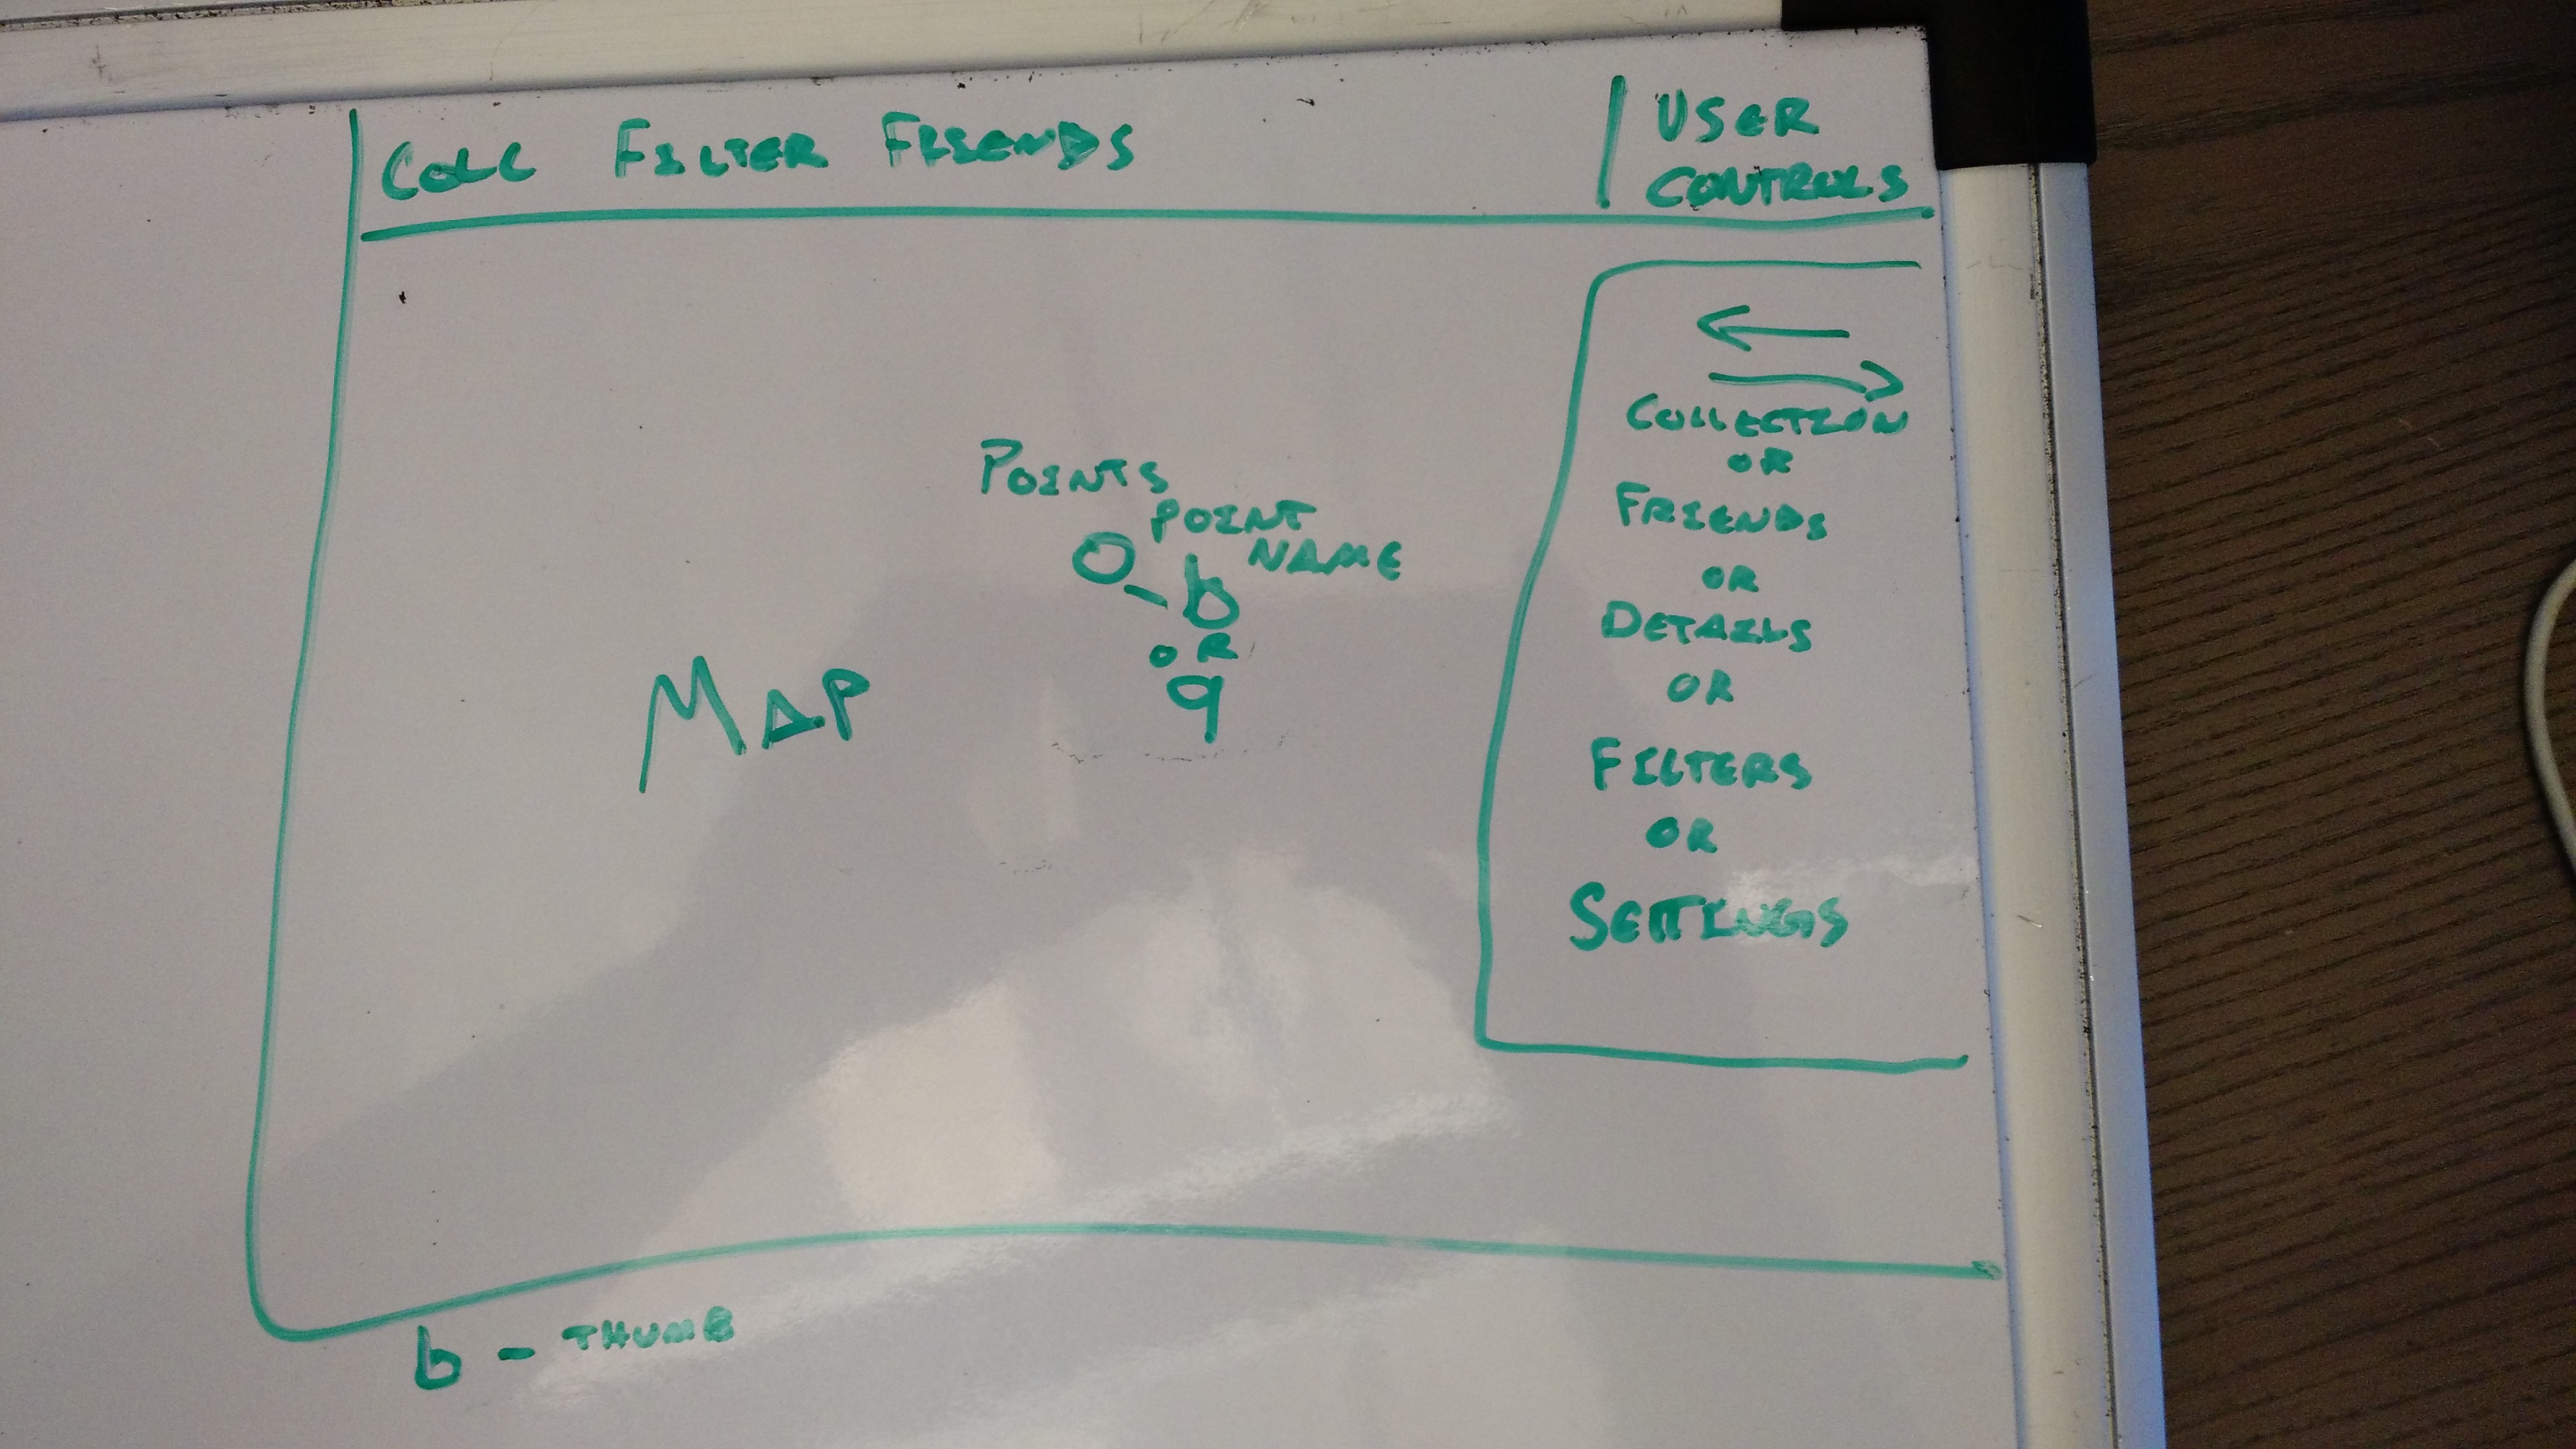 COLL FILTER FRIENDS
USER
CONTROLS
POINTS
POINT
NAME
O - b
OR
q
MAP
COLLECTION
OR
FRIENDS
OR
DETAILS
OR
FILTERS
OR
SETTINGS
b - THUMB